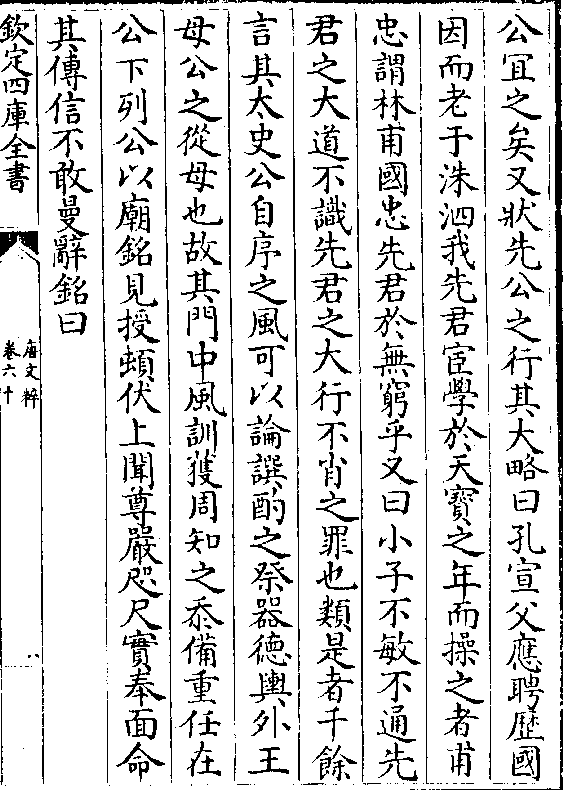 公冝之矣又狀先公之行其大略曰孔宣父應聘歴國
因而老于洙泗我先君宦學於天寶之年而操之者甫
忠謂林甫國忠先君於無窮乎又曰小子不敏不通先
君之大道不識先君之大行不肖之罪也類是者千餘
言其太史公自序之風可以論譔酌之祭器德輿外王
母公之從母也故其門中風訓獲周知之忝備重任在
公下列公以廟銘見授頓伏上聞尊嚴咫尺實奉面命
其傳信不敢曼辭銘曰
欽定四庫全書
唐文粹
卷六十